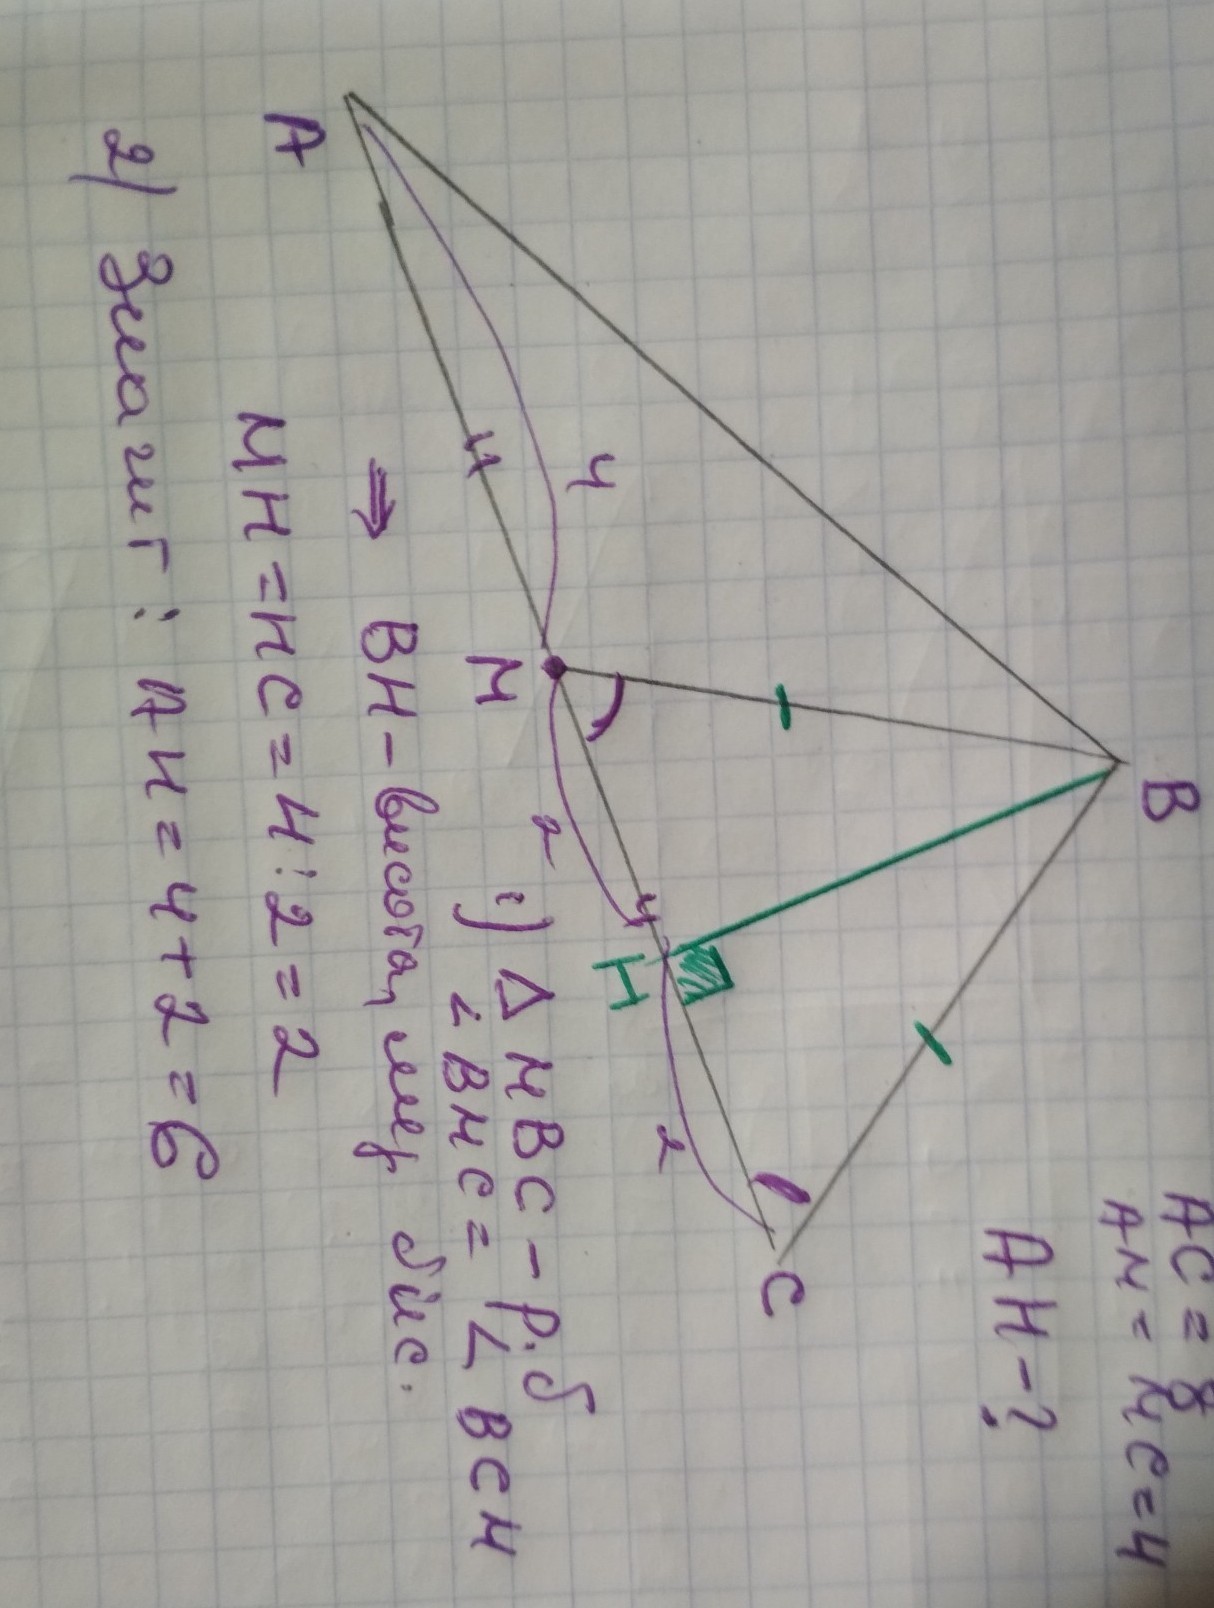 AC = 8
AM = MC = 4
AH - ?
B
4
M
2
H
2
A
C
1) Δ MBC - р.б
∠ BMC = ∠ BCM
⇒ BH - высота, мед, бис.
MH = HC = 4 : 2 = 2
2) Значит : AH = 4 + 2 = 6